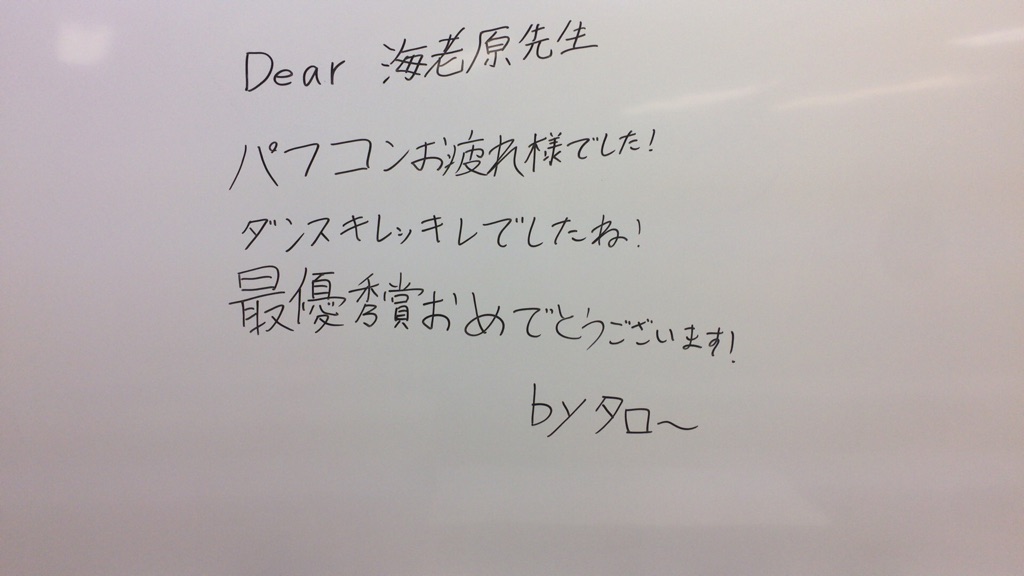 Dear 海老原先生
パフコンお疲れ様でした!
ダンスキレッキレでしたね!
最優秀賞おめでとうございます!
by タロ〜